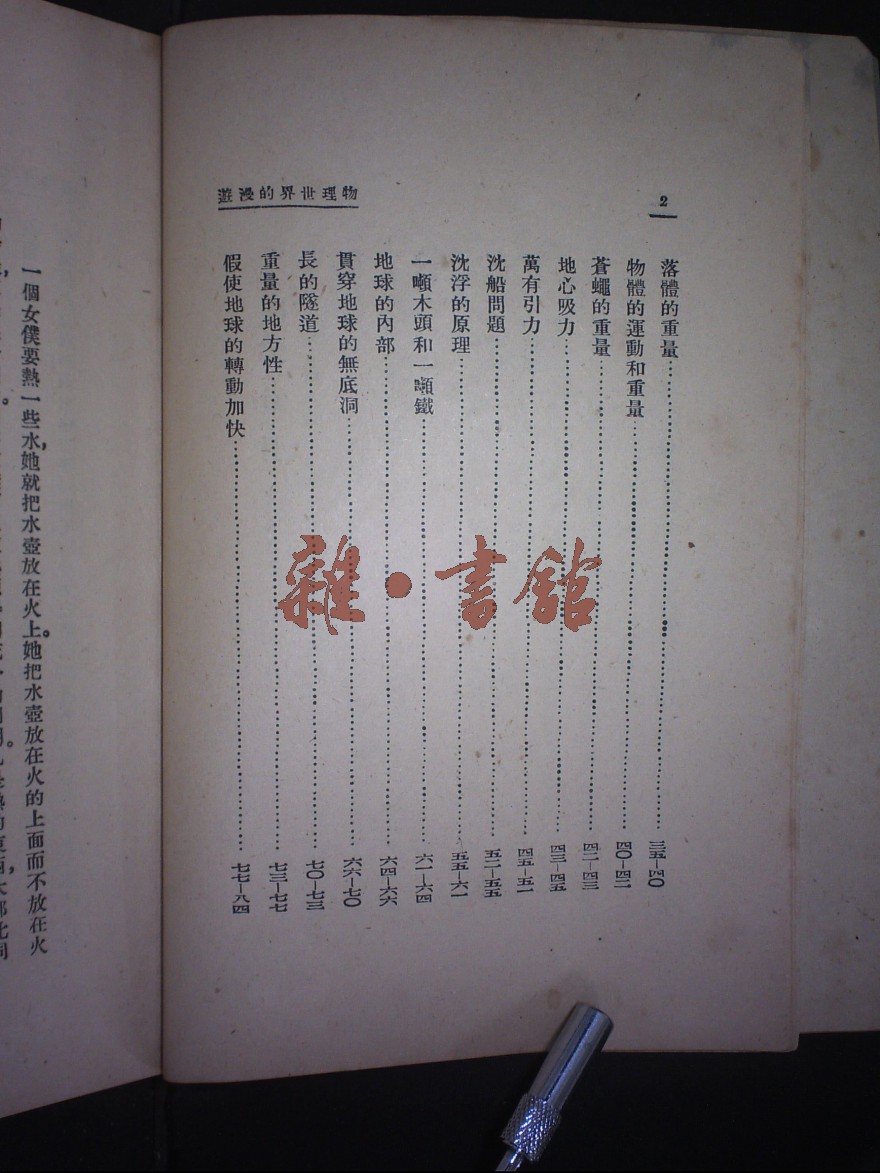 物理世界的漫遊
2
落體的重量 三五—四〇
物體的運動和重量 四〇—四二
蒼蠅的重量 四二—四三
地心吸力 四三—四五
萬有引力 四五—五一
沈船問題 五二—五五
沈浮的原理 五五—六一
一噸木頭和一噸鐵 六一—六四
地球的內部 六四—六六
貫穿地球的無底洞 六六—七〇
長的隧道 七〇—七三
重量的地方性 七三—七七
假使地球的轉動加快 七七—八四
雜·書館
一個女僕要熱一些水,她就把水壺放在火上。她把水壺放在火的上面而不放在火